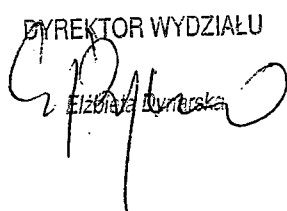 DYREKTOR WYDZIAŁU
Elżbieta Dynarska